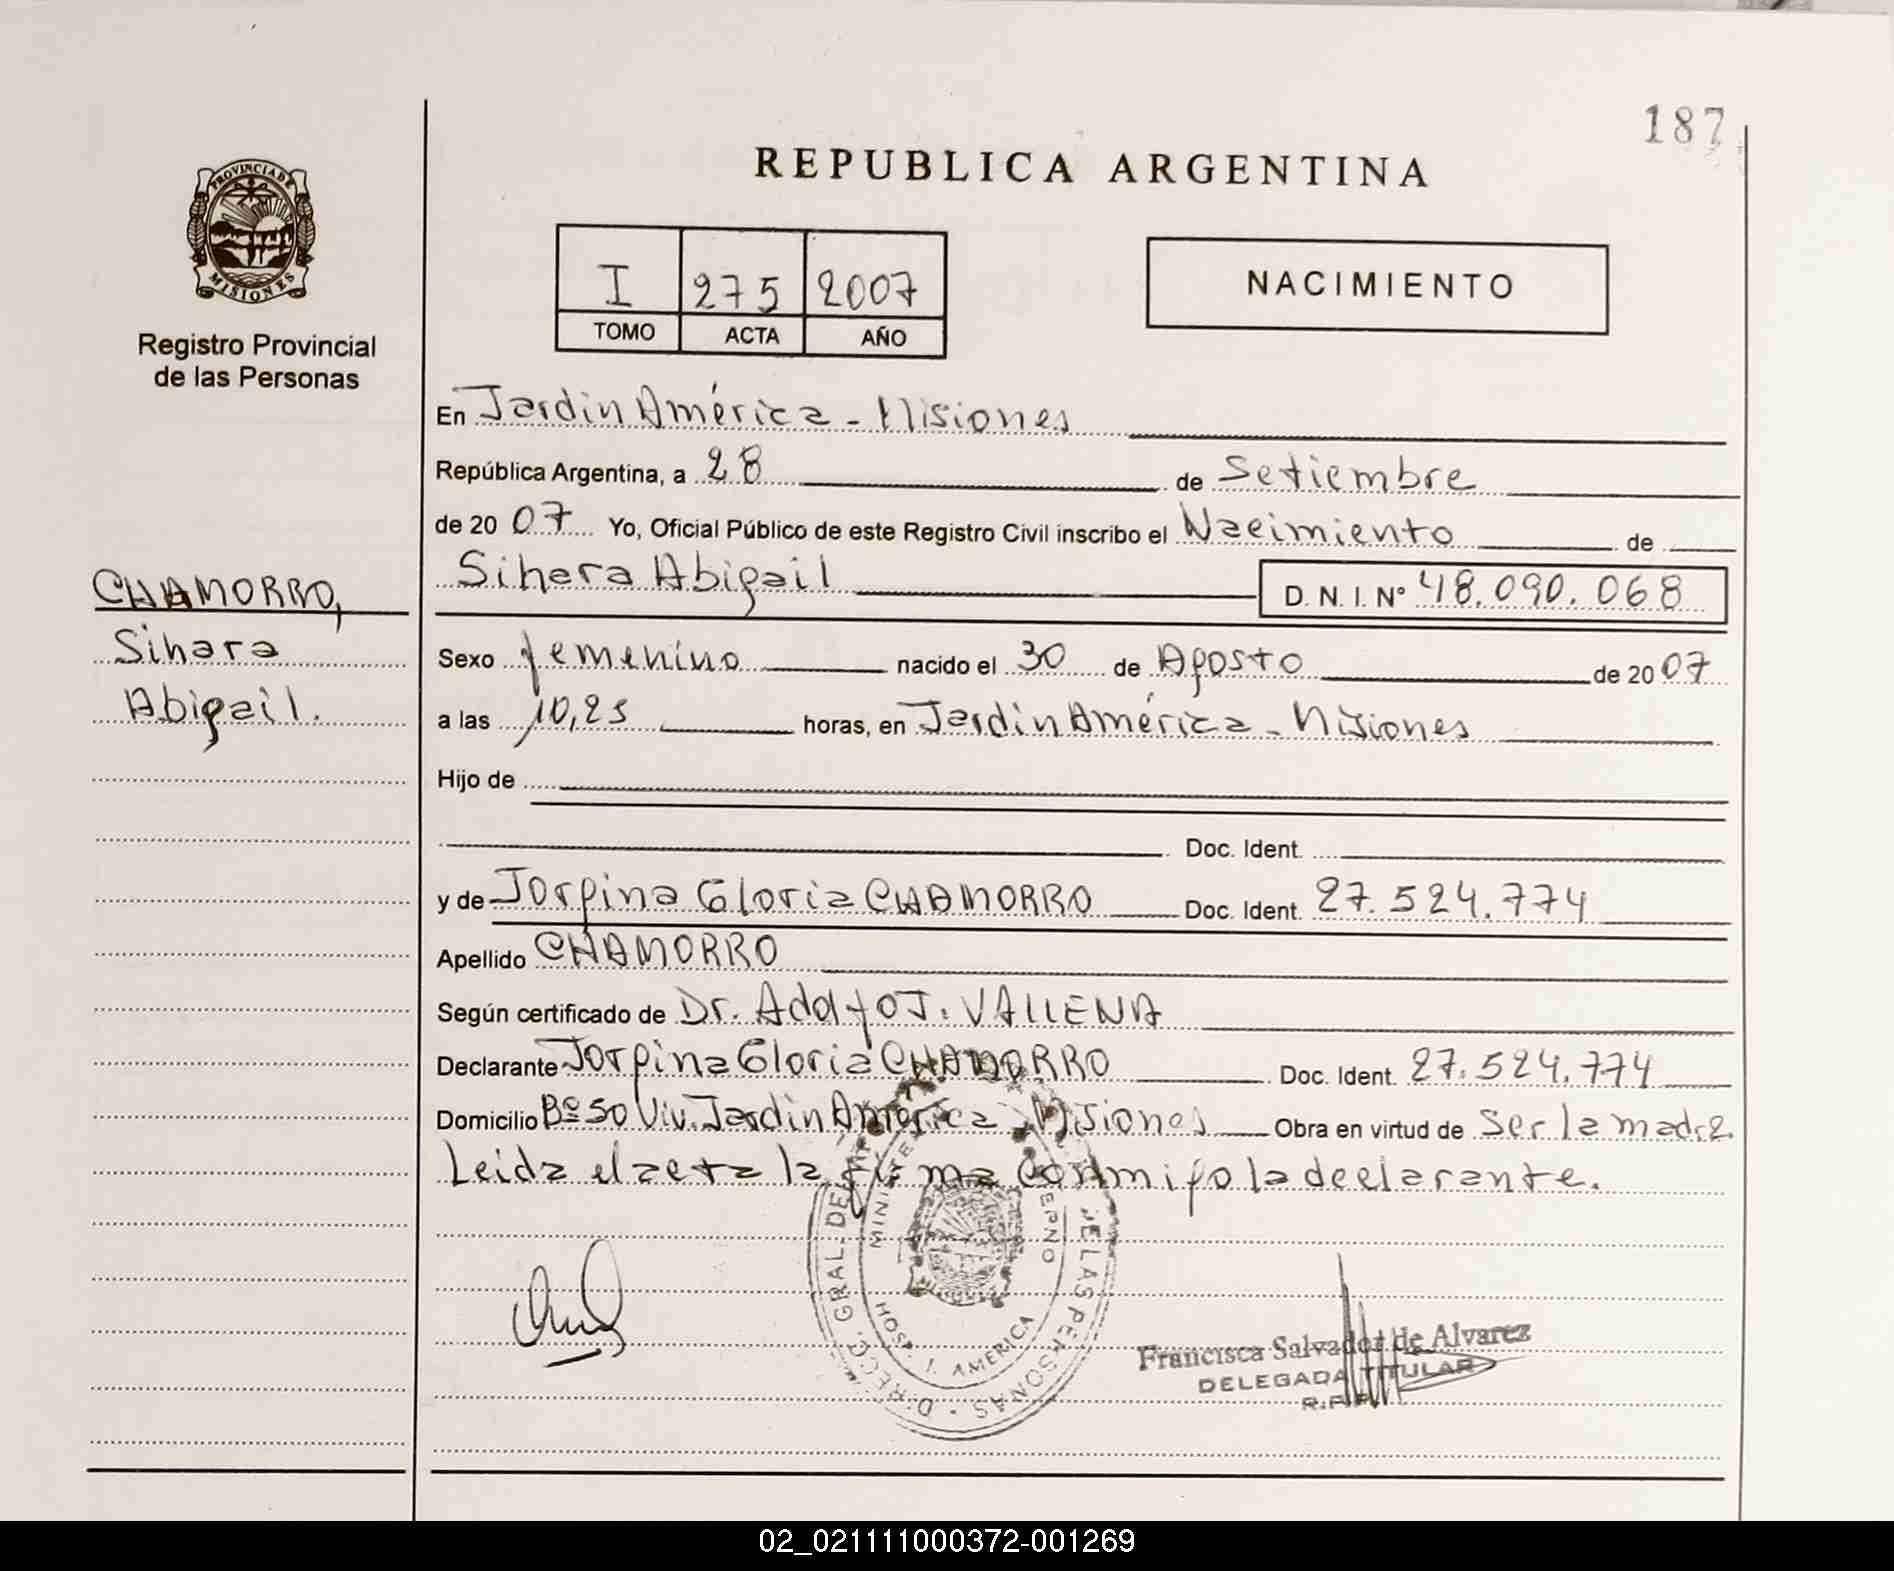 187
REPUBLICA ARGENTINA
PROVINCIA DE
MISIONES
Registro Provincial
de las Personas
I 275 2007
TOMO ACTA AÑO
NACIMIENTO
En Jardin América - Misiones
República Argentina, a 28 de Setiembre
de 20 07 Yo, Oficial Público de este Registro Civil inscribo el Nacimiento de
CHAMORRO,
Sihara
Abigail.
Sihara Abigail D. N. I. Nº 48.090.068
Sexo femenino nacido el 30 de Agosto de 20 07
a las 10,25 horas, en Jardin América - Misiones
Hijo de
Doc. Ident.
y de Jorgina Gloria CHAMORRO Doc. Ident. 27.524.774
Apellido CHAMORRO
Según certificado de Dr. Adolfo J. VALLENA
Declarante Jorgina Gloria CHAMORRO Doc. Ident. 27.524.774
Domicilio Bº 50 Viv. Jardin América, Misiones Obra en virtud de Ser la madre
Leida el acta la firma conmigo la declarante.
DIRECC. GRAL. DE LAS PERSONAS
HOSP. J. AMERICA
Francisca Salvador de Alvarez
DELEGADA TITULAR
R.P.P.
02_021111000372-001269